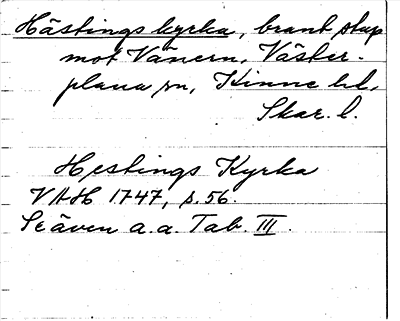 Hästings kyrka, brant stup
mot Vänern, Väster-
plana sn, Kinne hd,
Skar. l.
Hestings Kyrka
VAH 1747, s. 56.
Se även a. a. Tab. III.